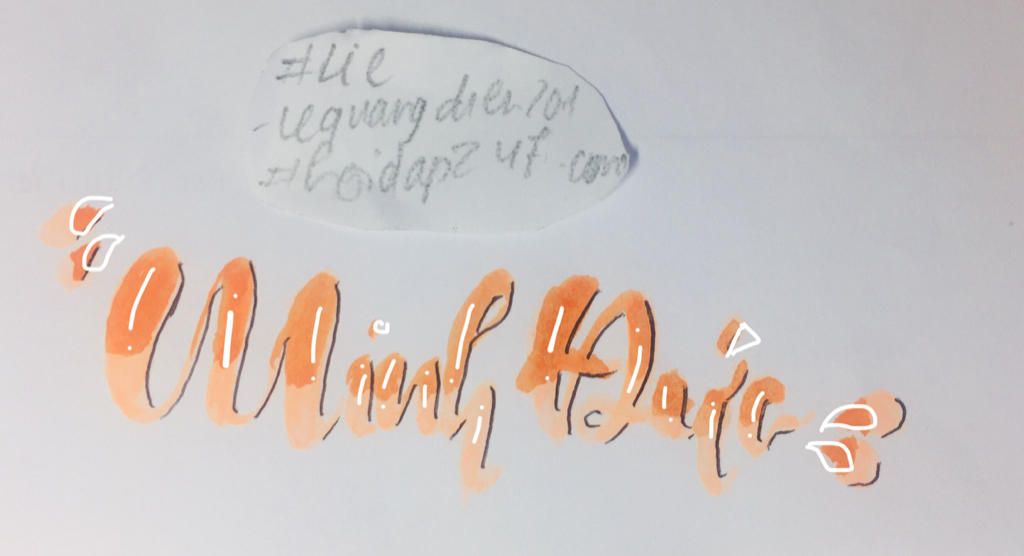 #Lie
-lequangdien201
#hoidap247.com
Minh Đức